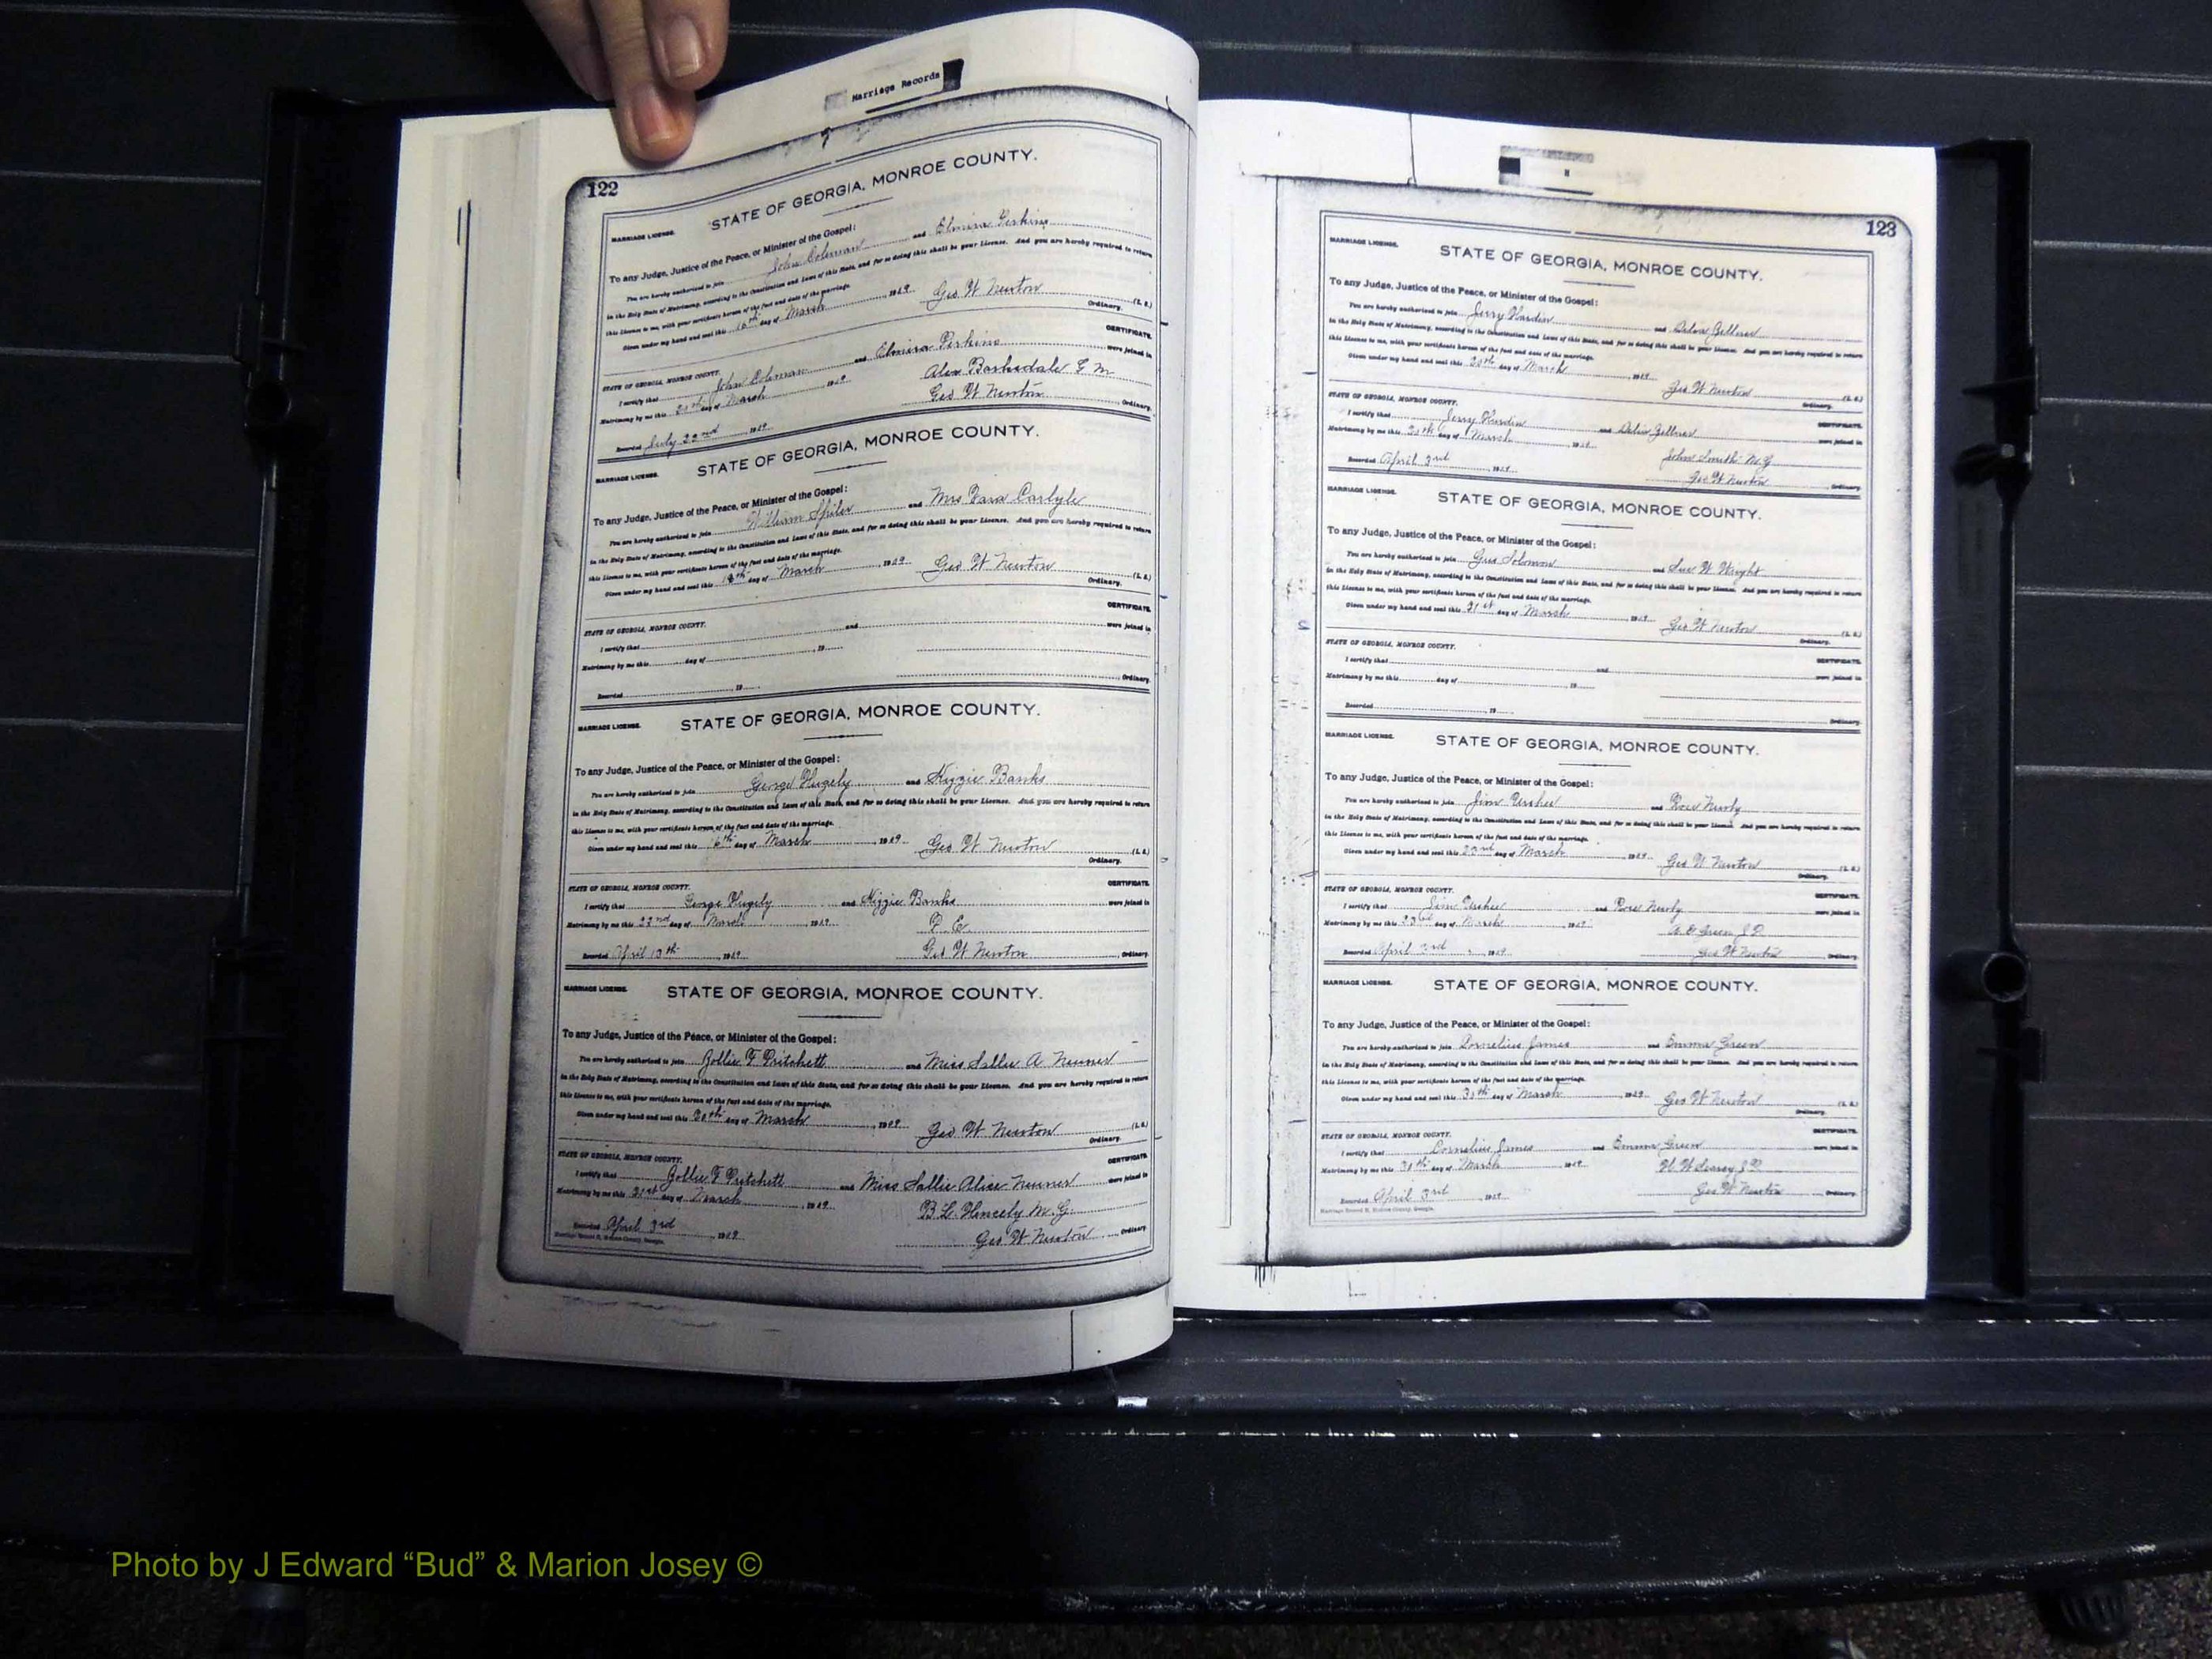 Marriage Records
122
STATE OF GEORGIA, MONROE COUNTY.
MARRIAGE LICENSE.
To any Judge, Justice of the Peace, or Minister of the Gospel:
You are hereby authorized to join John Coleman and Elmira Perkins
in the Holy State of Matrimony, according to the Constitution and Laws of this State, and for so doing this shall be your License. And you are hereby required to return
this License to me, with your certificate hereon of the fact and date of the marriage.
Given under my hand and seal this 16th day of March, 19
Geo W Newton (L. S.)
Ordinary.
CERTIFICATE.
STATE OF GEORGIA, MONROE COUNTY.
I certify that John Coleman and Elmira Perkins were joined in
Matrimony by me this day of March 19
Alex Barksdale
Recorded July 22nd 19 Geo W Newton Ordinary.
MARRIAGE LICENSE.
STATE OF GEORGIA, MONROE COUNTY.
To any Judge, Justice of the Peace, or Minister of the Gospel:
You are hereby authorized to join William Spiler and Mrs Carlyle
in the Holy State of Matrimony, according to the Constitution and Laws of this State, and for so doing this shall be your License. And you are hereby required to return
this License to me, with your certificate hereon of the fact and date of the marriage.
Given under my hand and seal this day of March, 19
Geo W Newton (L. S.)
Ordinary.
CERTIFICATE.
STATE OF GEORGIA, MONROE COUNTY.
I certify that and were joined in
Matrimony by me this day of , 19
Recorded , 19 Ordinary.
MARRIAGE LICENSE.
STATE OF GEORGIA, MONROE COUNTY.
To any Judge, Justice of the Peace, or Minister of the Gospel:
You are hereby authorized to join George Hugely and Kizzie Banks
in the Holy State of Matrimony, according to the Constitution and Laws of this State, and for so doing this shall be your License. And you are hereby required to return
this License to me, with your certificate hereon of the fact and date of the marriage.
Given under my hand and seal this day of March, 19
Geo W Newton (L. S.)
Ordinary.
CERTIFICATE.
STATE OF GEORGIA, MONROE COUNTY.
I certify that George Hugely and Kizzie Banks were joined in
Matrimony by me this 22nd day of March, 19
P. E.
Recorded April 13th, 19 Geo W Newton Ordinary.
MARRIAGE LICENSE.
STATE OF GEORGIA, MONROE COUNTY.
To any Judge, Justice of the Peace, or Minister of the Gospel:
You are hereby authorized to join Zollie F Pritchett and Miss Sallie A Nunner
in the Holy State of Matrimony, according to the Constitution and Laws of this State, and for so doing this shall be your License. And you are hereby required to return
this License to me, with your certificate hereon of the fact and date of the marriage.
Given under my hand and seal this 20th day of March, 19
Geo W Newton (L. S.)
Ordinary.
CERTIFICATE.
STATE OF GEORGIA, MONROE COUNTY.
I certify that Zollie F Pritchett and Miss Sallie Alice Nunner were joined in
Matrimony by me this 21st day of March, 19
M. G.
Recorded April 3rd, 19 Geo W Newton Ordinary.
Marriage Record R, Monroe County, Georgia.
123
MARRIAGE LICENSE.
STATE OF GEORGIA, MONROE COUNTY.
To any Judge, Justice of the Peace, or Minister of the Gospel:
You are hereby authorized to join Jerry Hardin and Zellner
in the Holy State of Matrimony, according to the Constitution and Laws of this State, and for so doing this shall be your License. And you are hereby required to return
this License to me, with your certificate hereon of the fact and date of the marriage.
Given under my hand and seal this 20th day of March, 19
Geo W Newton (L. S.)
Ordinary.
CERTIFICATE.
STATE OF GEORGIA, MONROE COUNTY.
I certify that Jerry Hardin and Zellner were joined in
Matrimony by me this day of March, 19
John Smith M.G.
Recorded April 3rd, 19 Geo W Newton Ordinary.
MARRIAGE LICENSE.
STATE OF GEORGIA, MONROE COUNTY.
To any Judge, Justice of the Peace, or Minister of the Gospel:
You are hereby authorized to join Gus Solomon and Sue W Wright
in the Holy State of Matrimony, according to the Constitution and Laws of this State, and for so doing this shall be your License. And you are hereby required to return
this License to me, with your certificate hereon of the fact and date of the marriage.
Given under my hand and seal this 21st day of March, 19
Geo W Newton (L. S.)
Ordinary.
CERTIFICATE.
STATE OF GEORGIA, MONROE COUNTY.
I certify that and were joined in
Matrimony by me this day of , 19
Recorded , 19 Ordinary.
MARRIAGE LICENSE.
STATE OF GEORGIA, MONROE COUNTY.
To any Judge, Justice of the Peace, or Minister of the Gospel:
You are hereby authorized to join Jim Ussher and Rose
in the Holy State of Matrimony, according to the Constitution and Laws of this State, and for so doing this shall be your License. And you are hereby required to return
this License to me, with your certificate hereon of the fact and date of the marriage.
Given under my hand and seal this 22nd day of March, 19
Geo W Newton (L. S.)
Ordinary.
CERTIFICATE.
STATE OF GEORGIA, MONROE COUNTY.
I certify that Jim Ussher and Rose were joined in
Matrimony by me this 23rd day of March, 19
Green J.P.
Recorded April 3rd, 19 Geo W Newton Ordinary.
MARRIAGE LICENSE.
STATE OF GEORGIA, MONROE COUNTY.
To any Judge, Justice of the Peace, or Minister of the Gospel:
You are hereby authorized to join Cornelius James and Emma Green
in the Holy State of Matrimony, according to the Constitution and Laws of this State, and for so doing this shall be your License. And you are hereby required to return
this License to me, with your certificate hereon of the fact and date of the marriage.
Given under my hand and seal this 30th day of March, 19
Geo W Newton (L. S.)
Ordinary.
CERTIFICATE.
STATE OF GEORGIA, MONROE COUNTY.
I certify that Cornelius James and Emma Green were joined in
Matrimony by me this day of March 19
Searcy J.P.
Recorded April 3rd, 19 Geo W Newton Ordinary.
Marriage Record R, Monroe County, Georgia.
Photo by J Edward “Bud” & Marion Josey ©